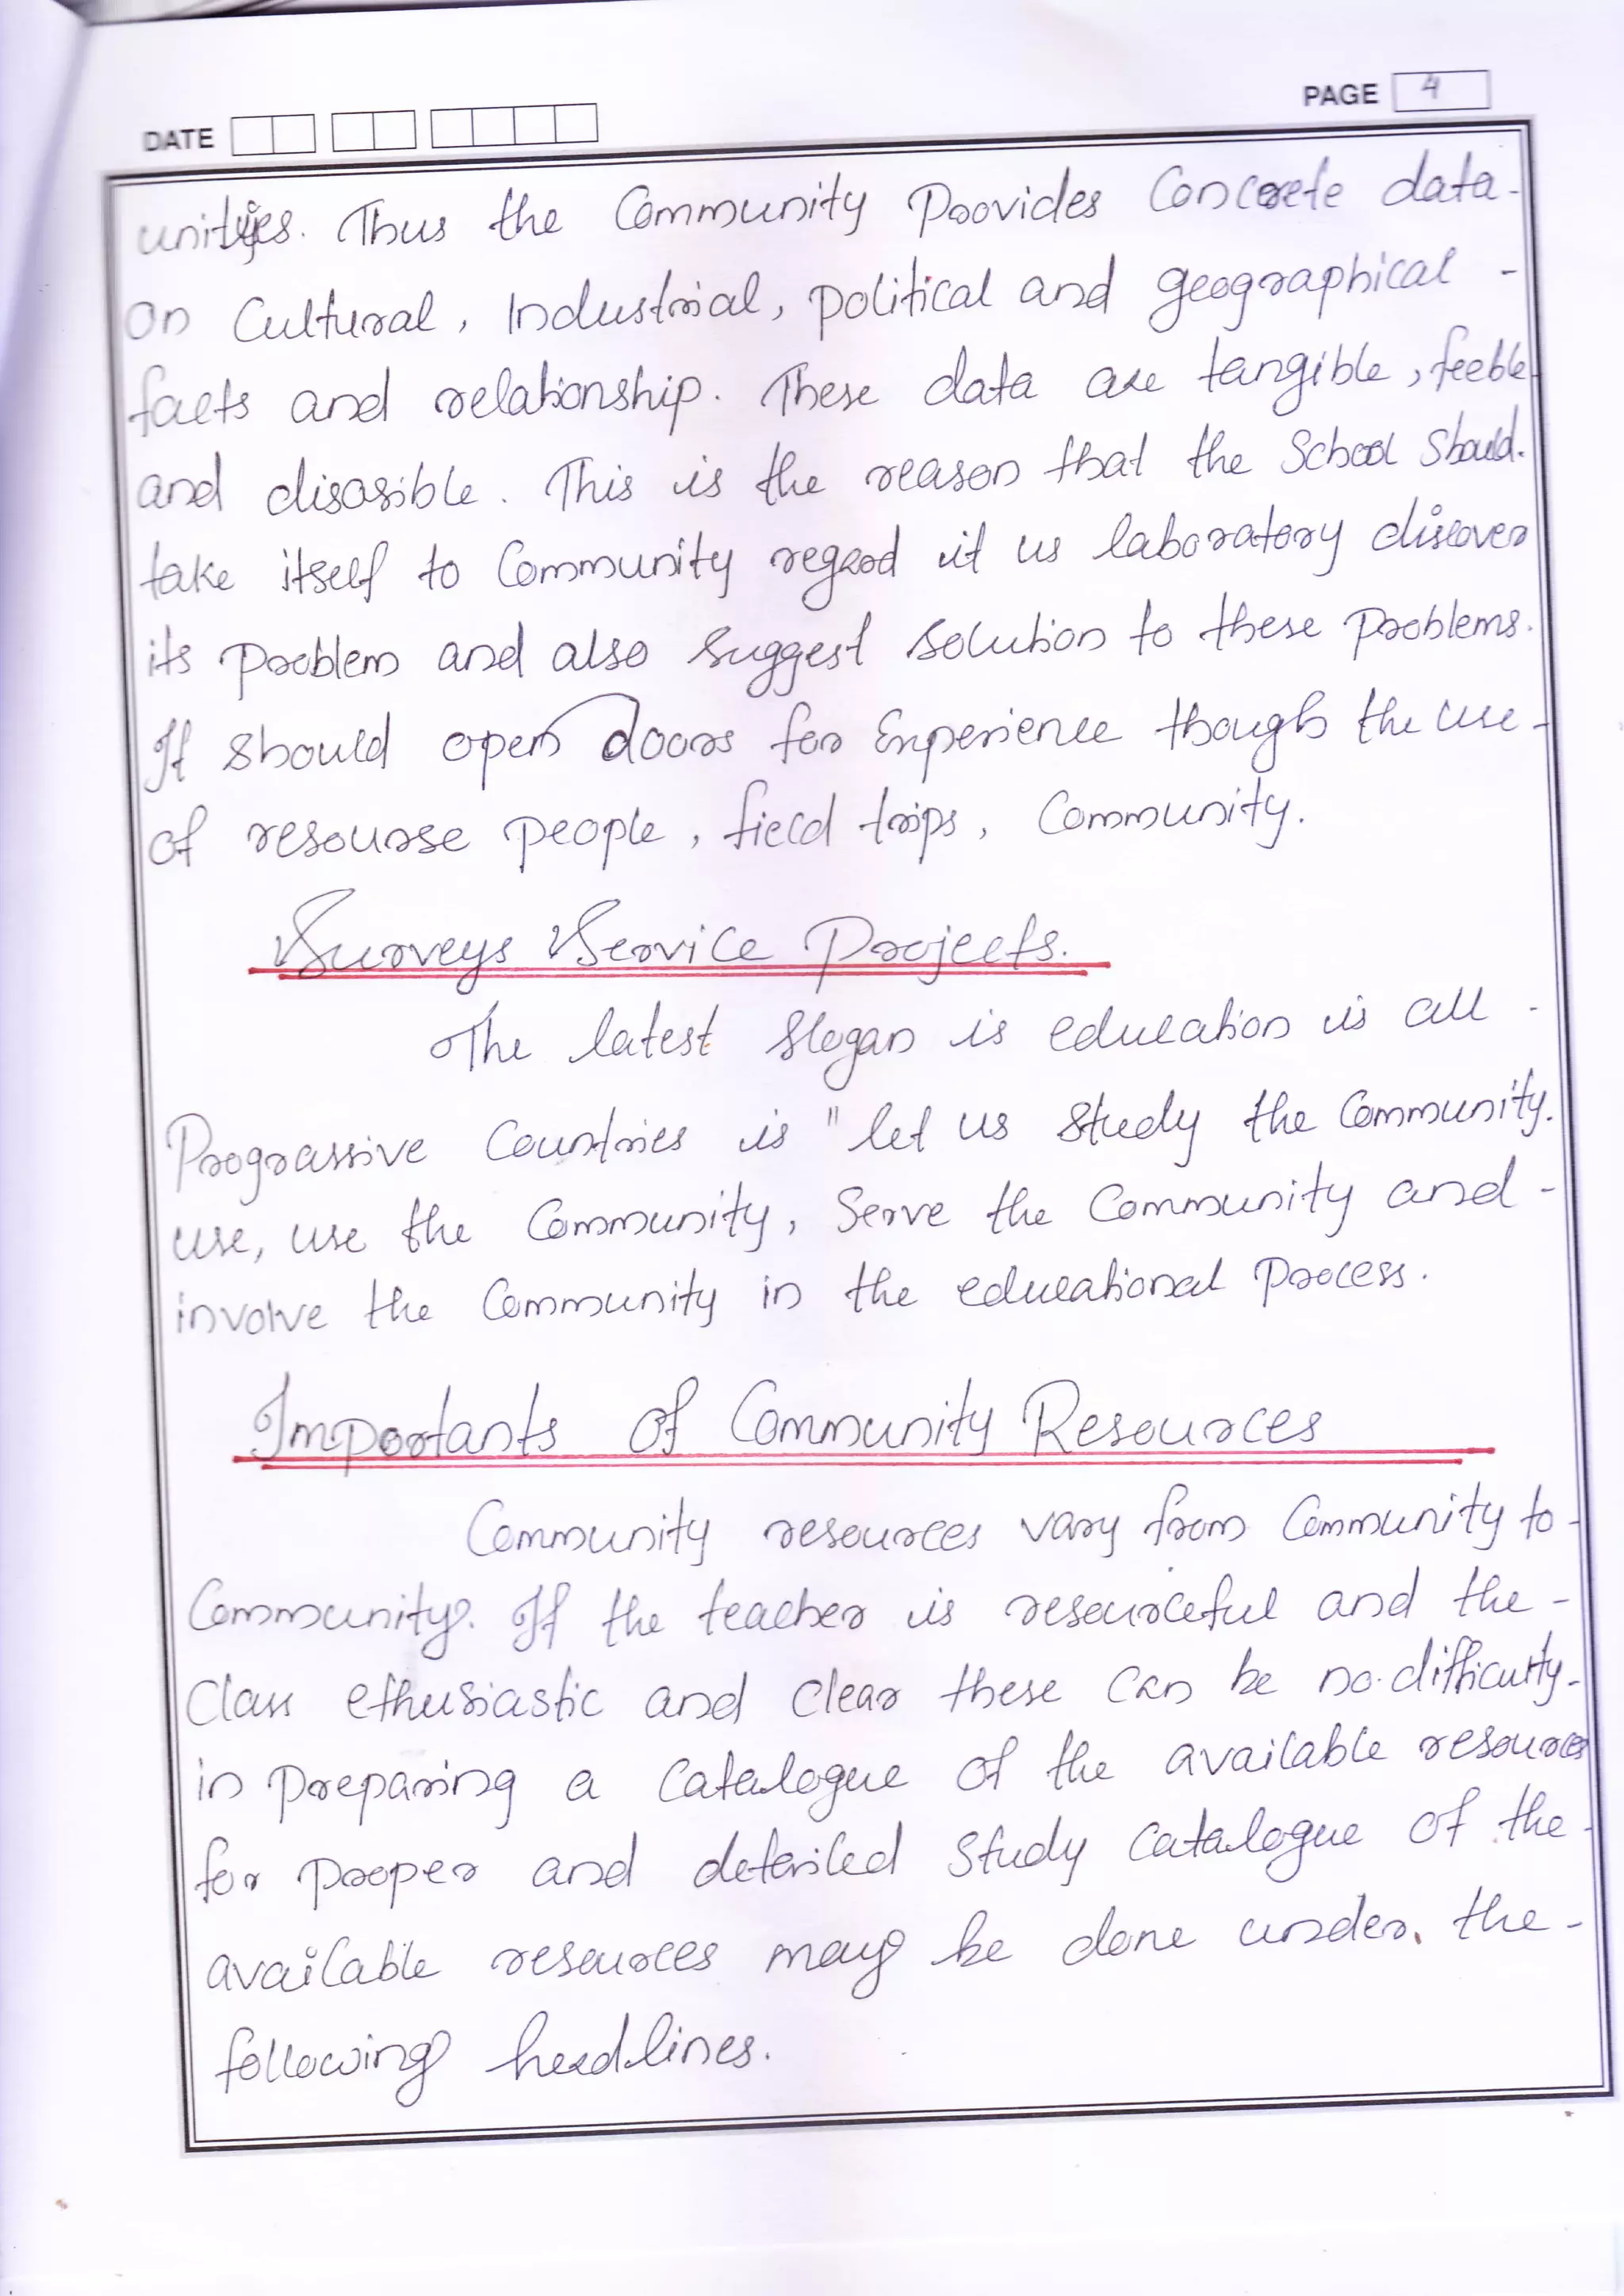 PAGE 4
DATE
unities. Thus the Community Provides Concrete data-
on Cultural, Industrial, political and geographical -
facts and relationship. These data are tangible, feeble
and disosible. This is the reason that the School Should.
take itself to Community regard it us laboratory discover
its problem and also suggest solution to these problems.
It should open doors for Experience though the use -
of resourse people, field trips, Community.
Surveys Service Projects.
The latest slogan is education is all -
Prograssive Countries is " let us study the Community.
use, use the Community, Serve the Community and -
involve the Community in the educational Process.
Importants of Community Resources
Community resources vary from Community to -
Community. If the teacher is resourceful and the -
Class ethusiastic and clear these can be no difficulty-
in preparing a catalogue of the available resources
for proper and detailed study catalogue of the -
available resources may be done under. the -
following headlines.